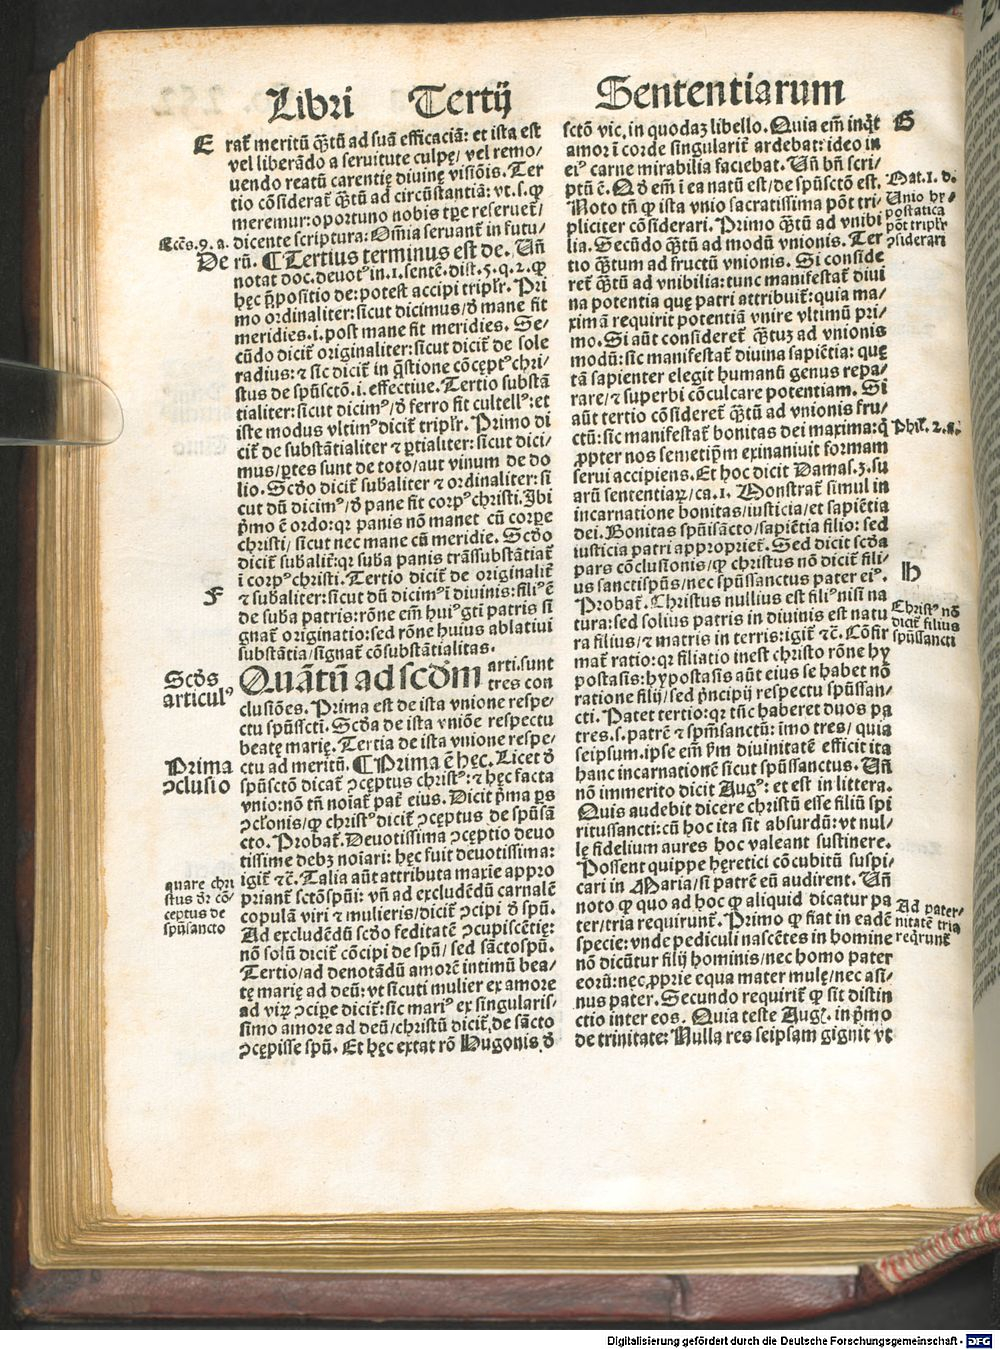 Libri Tertij Sententiarum
E
rat̃ meritũ q̃tũ ad suã efficaciã: et ista est
vel liberãdo a seruitute culpę/ vel remo⸗
uendo reatũ carentię diuinę visiõis. Ter
tio cõsiderat̃ q̃tũ ad circũstantiã: vt. s. ꝙ
meremur: oportuno nobis tꝑe reseruet̃/
Ecc̃s. 9. a. dicente scriptura: Om̃ia seruant̃ in futu⸗
De rũ. ¶ Tertius terminus est de. Uñ
notat doc. deuotꝰ in .1. sentẽ. dist. 5. q. 2. ꝙ
hęc p̃positio de: potest accipi tripl̃r. Pri
mo ordinaliter: sicut dicimus/ đ mane fit
meridies. i. post mane fit meridies. Se⸗
cũdo dicit̃ originaliter: sicut dicit̃ de sole
radius: ⁊ sic dicit̃ in q̃stione cõcęptꝰ chri⸗
stus de spũsctõ. i. effectiue. Tertio substã
tialiter: sicut dicimꝰ/ đ ferro fit cultellꝰ: et
iste modus vltimꝰ dicit̃ tripl̃r. Primo di
cit̃ de substãtialiter ⁊ ꝑtialiter: sicut dici⸗
mus/ ꝑtes sunt de toto/ aut vinum de do
lio. Scđo dicit̃ subãliter ⁊ ordinaliter: si
cut dũ dicimꝰ/ đ pane fit corpꝰ christi. Ibi
p̃mo ẽ ordo: qꝛ panis nõ manet cũ corꝑe
christi/ sicut nec mane cũ meridie. Scđo
dicit̃ subãlit̃: qꝛ subã panis trãssubstãtiat̃
ĩ corpꝰ christi. Tertio dicit̃ de originalit̃
F
⁊ subãliter: sicut dũ dicimꝰ ĩ diuinis: filiꝰ ẽ
de subã patris: rõne em̃ huiꝰ gt̃i patris si
gnat̃ originatio: sed rõne huius ablatiui
substãtia/ signat̃ cõsubstãtialitas.
Scđs
articulꝰ
Quãtũ ad scđm arti. sunt
tres con
clusiões. Prima est de ista vnione respe⸗
ctu spũsscti. Scđa de ista vniõe respectu
beatę marię. Tertia de ista vnione respe⸗
ctu ad meritũ. ¶ Prima ẽ hęc. Licet đ
Prima
ꝯclusio
spũsctõ dicat̃ ꝯceptus christꝰ: ⁊ hęc facta
vnio: nõ tñ noĩat̃ pat̃ eius. Dicit p̃ma ꝑs
ꝯclõnis/ ꝙ christꝰ dicit̃ ꝯceptus de spũsã
cto. Probat̃. Deuotissima ꝯceptio deuo
tissime debꝫ noĩari: hęc fuit deuotissima:
igit̃ ⁊c̃. Talia aũt attributa maxie appro
priant̃ sctõspũi: vñ ad excludẽdũ carnalẽ
quare chri
stus đr cõ⸗
ceptus de
spũsancto
copulã viri ⁊ mulieris/ dicit̃ ꝯcipi đ spũ.
Ad excludẽdũ scđo feditatẽ ꝯcupiscẽtię:
nõ solũ dicit̃ cõcipi de spũ/ sed sãctospũ.
Tertio/ ad denotãdũ amorẽ intimũ bea⸗
tę marię ad deũ: vt sicuti mulier ex amore
ad virꝝ ꝯcipe dicit̃: sic mariꝰ ex singularis⸗
simo amore ad deũ/ christũ dicit̃ de sãcto
ꝯcępisse spũ. Et hęc extat rõ Hugonis đ
sctõ vic. in quodaꝫ libello. Quia em̃ inq̃t
G
amor ĩ corde singularit̃ ardebat: ideo in
eiꝰ carne mirabilia faciebat. Uñ bñ scri⸗
ptũ ẽ. Qđ em̃ ĩ ea natũ est/ de spũsctõ est.
Mat. 1. d.
Unio hy⸗
postatica
põt tripl̃r
ꝯsiderari
Noto tñ ꝙ ista vnio sacratissima põt tri⸗
pliciter cõsiderari. Primo q̃tũ ad vnibi
lia. Secũdo q̃tũ ad modũ vnionis. Ter
tio q̃tum ad fructũ vnionis. Si conside
ret̃ q̃tũ ad vnibilia: tunc manifestat̃ diui
na potentia quę patri attribuit̃: quia ma⸗
ximã requirit potentiã vnire vltimũ pri⸗
mo. Si aũt consideret̃ q̃tuꝫ ad vnionis
modũ: sic manifestat̃ diuina sapiẽtia: quę
tã sapienter elegit humanũ genus repa⸗
rare/ ⁊ superbi cõculcare potentiam. Si
aũt tertio cõsideret̃ q̃tũ ad vnionis fru⸗
ctũ: sic manifestat̃ bonitas dei maxima: q̃
Phil̃. 2. a.
ꝓpter nos semetip̃m exinaniuit formam
serui accipiens. Et hoc dicit Damas. 3. su
arũ sententiaꝝ/ ca. 1. Monstrat̃ simul in
incarnatione bonitas/ iusticia/ et sapiẽtia
dei. Bonitas spũisãcto/ sapiẽtia filio: sed
iusticia patri appropriet̃. Sed dicit scđa
pars cõclusionis/ ꝙ christus nõ dicit̃ fili⸗
H
us sanctispũs/ nec spũssanctus pater eiꝰ.
Probat̃. Christus nullius est filiꝰ nisi na
Christꝰ nõ
dicit̃ filius
spũssancti
tura: sed solius patris in diuinis est natu
ra filius/ ⁊ matris in terris: igit̃ ⁊c̃. Cõfir
mat̃ ratio: qꝛ filiatio inest christo rõne hy
postasis: hypostasis aũt eius se habet nõ
ratione filij/ sed p̃ncipij respectu spũssan⸗
cti. Patet tertio: qꝛ tũc haberet duos pa
tres. s. patrẽ ⁊ spm̃sanctũ: imo tres/ quia
seipsum. ipse em̃ p̃m diuinitatẽ efficit ita
hanc incarnationẽ sicut spũssanctus. Uñ
nõ immerito dicit Augꝰ: et est in littera.
Quis audebit dicere christũ esse filiũ spi
ritussancti: cũ hoc ita sit absurdũ: vt nul⸗
lę fidelium aures hoc valeant sustinere.
Possent quippe hęretici cõcubitũ suspi⸗
cari in Maria/ si patrẽ eũ audirent. Uñ
noto ꝙ quo ad hoc ꝙ aliquid dicatur pa
Ad pater⸗
nitatẽ tria
req̃runt̃
ter/ tria requirunt̃. Primo ꝙ fiat in eadẽ
specie: vnde pediculi nascẽtes in homine
nõ dicũtur filij hominis/ nec homo pater
eorũ: nec ꝓprie equa mater mulę/ nec asi⸗
nus pater. Secundo requirit̃ ꝙ sit distin
ctio inter eos. Quia teste Augꝰ. in p̃mo
de trinitate: Nulla res seipsam gignit vt
Digitalisierung gefördert durch die Deutsche Forschungsgemeinschaft - DFG